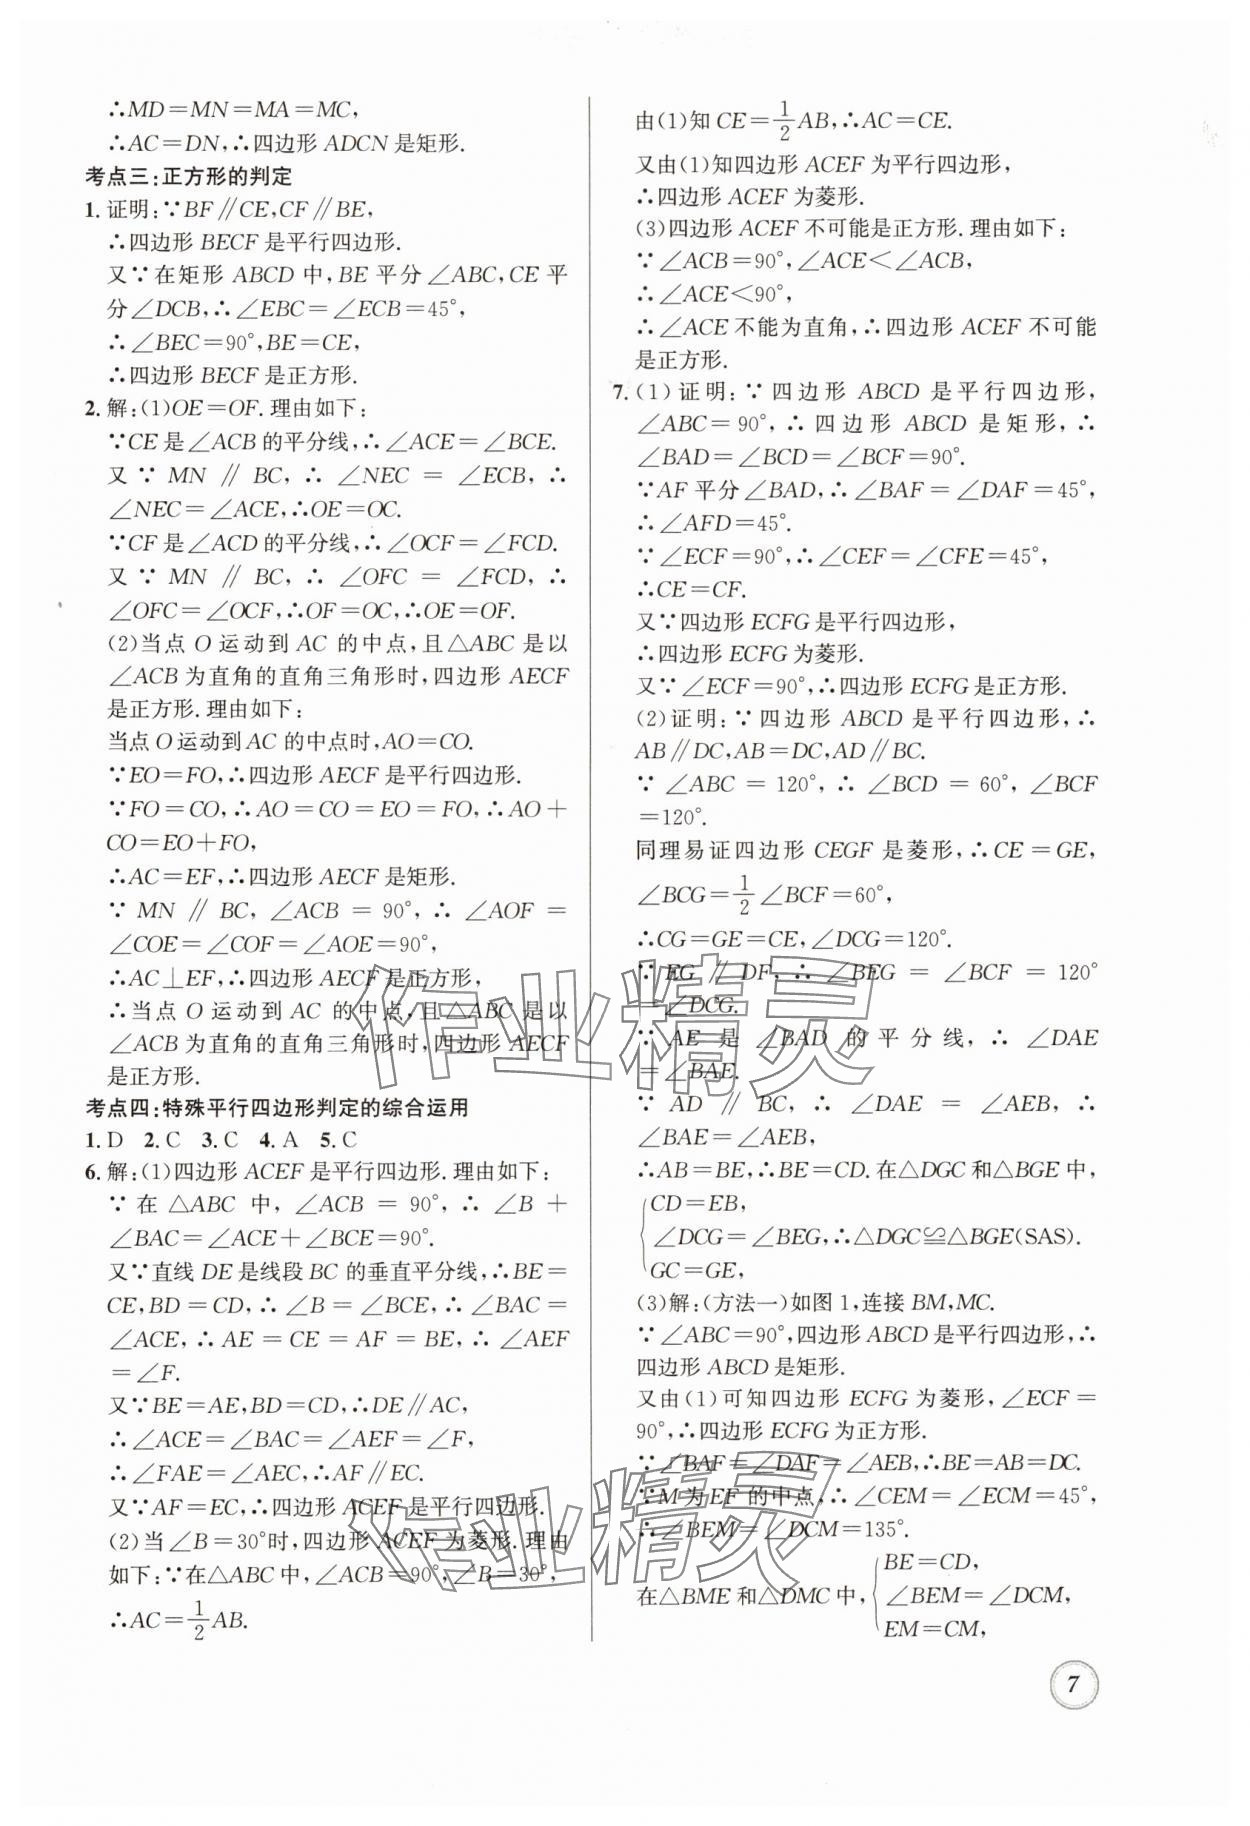 ∴MD=MN=MA=MC,
∴AC=DN,∴四边形 ADCN 是矩形.
考点三:正方形的判定
1. 证明:∵BF∥CE,CF∥BE,
∴四边形 BECF 是平行四边形.
又∵在矩形 ABCD 中,BE 平分∠ABC,CE 平
分∠DCB,∴∠EBC=∠ECB=45°,
∴∠BEC=90°,BE=CE,
∴四边形 BECF 是正方形.
2. 解:(1)OE=OF. 理由如下:
∵CE 是∠ACB 的平分线,∴∠ACE=∠BCE.
又 ∵ MN ∥ BC, ∴ ∠NEC = ∠ECB, ∴
∠NEC=∠ACE,∴OE=OC.
∵CF 是∠ACD 的平分线,∴∠OCF=∠FCD.
又 ∵ MN ∥ BC, ∴ ∠OFC = ∠FCD, ∴
∠OFC=∠OCF,∴OF=OC,∴OE=OF.
(2)当点 O 运动到 AC 的中点,且△ABC 是以
∠ACB 为直角的直角三角形时,四边形 AECF
是正方形. 理由如下:
当点 O 运动到 AC 的中点时,AO=CO.
∵EO=FO,∴四边形 AECF 是平行四边形.
∵FO=CO,∴AO=CO=EO=FO,∴AO+
CO=EO+FO,
∴AC=EF,∴四边形 AECF 是矩形.
∵ MN ∥ BC, ∠ACB = 90°, ∴ ∠AOF =
∠COE=∠COF=∠AOE=90°,
∴AC⊥EF,∴四边形 AECF 是正方形,
∴当点 O 运动到 AC 的中点,且△ABC 是以
∠ACB 为直角的直角三角形时,四边形 AECF
是正方形.
考点四:特殊平行四边形判定的综合运用
1. D 2. C 3. C 4. A 5. C
6. 解:(1)四边形 ACEF 是平行四边形. 理由如下:
∵ 在 △ABC 中, ∠ACB = 90°, ∴ ∠B +
∠BAC=∠ACE+∠BCE=90°.
又∵直线 DE 是线段 BC 的垂直平分线,∴BE=
CE,BD=CD,∴∠B=∠BCE,∴∠BAC=
∠ACE,∴AE=CE=AF=BE,∴∠AEF
=∠F.
又∵BE=AE,BD=CD,∴DE∥AC,
∴∠ACE=∠BAC=∠AEF=∠F,
∴∠FAE=∠AEC,∴AF∥EC.
又∵AF=EC,∴四边形 ACEF 是平行四边形.
(2)当∠B=30°时,四边形 ACEF 为菱形. 理由
如下:∵在△ABC 中,∠ACB=90°,∠B=30°,
∴AC=1/2AB.
由(1)知 CE=1/2AB,∴AC=CE.
又由(1)知四边形 ACEF 为平行四边形,
∴四边形 ACEF 为菱形.
(3)四边形 ACEF 不可能是正方形. 理由如下:
∵∠ACB=90°,∠ACE<∠ACB,
∴∠ACE<90°,
∴∠ACE 不能为直角,∴四边形 ACEF 不可能
是正方形.
7. (1) 证明: ∵ 四边形 ABCD 是平行四边形,
∠ABC= 90°, ∴ 四边形 ABCD 是矩形, ∴
∠BAD=∠BCD=∠BCF=90°.
∵AF 平分∠BAD,∴∠BAF=∠DAF=45°,
∴∠AFD=45°.
∵∠ECF=90°,∴∠CEF=∠CFE=45°,
∴CE=CF.
又∵四边形 ECFG 是平行四边形,
∴四边形 ECFG 为菱形.
又∵∠ECF=90°,∴四边形 ECFG 是正方形.
(2)证明:∵四边形 ABCD 是平行四边形,∴
AB∥DC,AB=DC,AD∥BC.
∵ ∠ABC = 120°, ∴ ∠BCD = 60°, ∠BCF
=120°.
同理易证四边形 CEGF 是菱形,∴CE=GE,
∠BCG=1/2∠BCF=60°,
∴CG=GE=CE,∠DCG=120°.
∵ EG ∥ DF, ∴ ∠BEG = ∠BCF = 120°
=∠DCG.
∵ AE 是 ∠BAD 的平分线, ∴ ∠DAE
=∠BAE.
∵ AD ∥ BC, ∴ ∠DAE = ∠AEB, ∴
∠BAE=∠AEB,
∴AB=BE,∴BE=CD. 在△DGC 和△BGE 中,
CD=EB,
∠DCG=∠BEG,∴△DGC≌△BGE(SAS).
GC=GE,
(3)解:(方法一)如图 1,连接 BM,MC.
∵∠ABC=90°,四边形 ABCD 是平行四边形,∴
四边形 ABCD 是矩形.
又由(1)可知四边形 ECFG 为菱形,∠ECF=
90°,∴四边形 ECFG 为正方形.
∵∠BAF=∠DAF=∠AEB,∴BE=AB=DC.
∵M 为 EF 的中点,∴∠CEM=∠ECM=45°,
∴∠BEM=∠DCM=135°.
在△BME 和△DMC 中,
BE=CD,
∠BEM=∠DCM,
EM=CM,
7
作业精灵
作业精灵